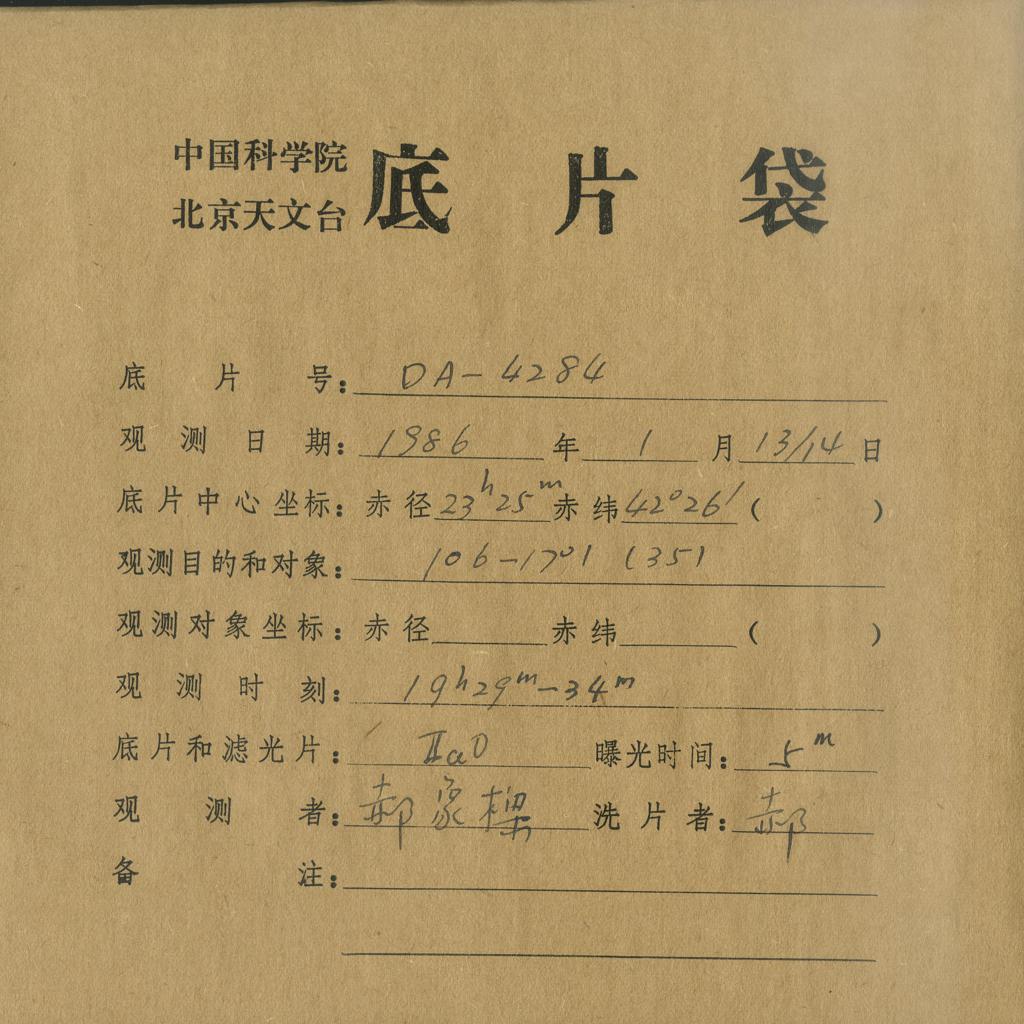 中国科学院
北京天文台 底片袋
底片号：DA-4284
观测日期：1986年1月13/14日
底片中心坐标：赤径23h25m赤纬42°26′（ ）
观测目的和对象：106-1701 (35)
观测对象坐标：赤径 赤纬 （ ）
观测时刻：19h29m-34m
底片和滤光片：IIaO 曝光时间：5m
观测者：郝象樑 洗片者：郝
备注：